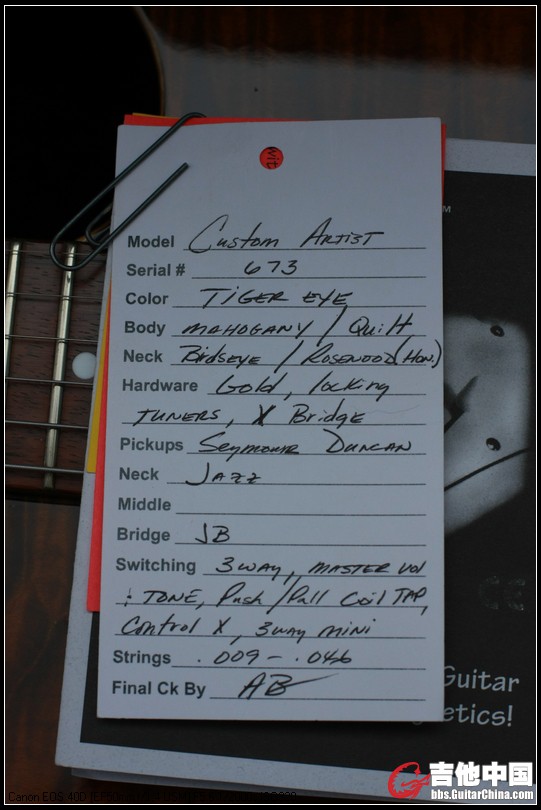 Model Custom Artist
Serial # 673
Color Tiger Eye
Body mahogany / Quilt
Neck Birdseye / Rosewood (Hon.)
Hardware Gold, locking
tuners, X Bridge
Pickups Seymour Duncan
Neck Jazz
Middle
Bridge JB
Switching 3way, master vol
: Tone, Push/Pull Coil Tap,
Control X, 3way mini
Strings .009 - .046
Final Ck By AB
TM
Guitar
etics!
吉他中国
bbs.GuitarChina.com
Canon EOS 40D